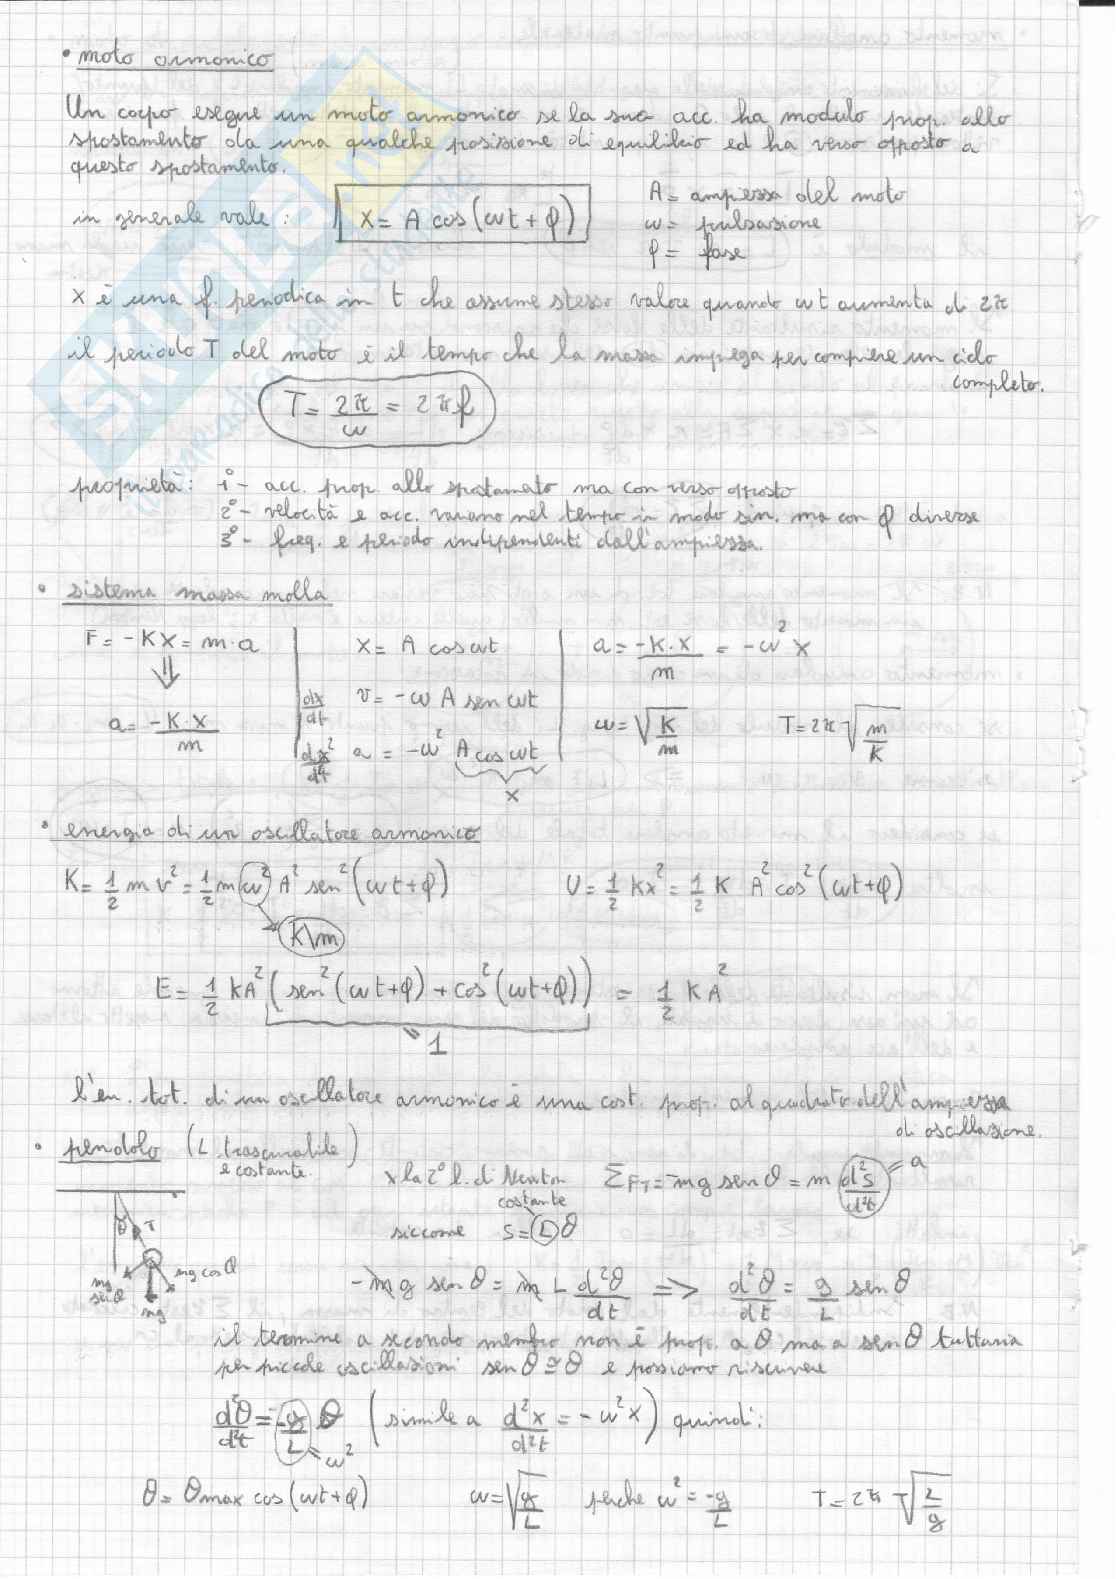 • moto armonico
Un corpo esegue un moto armonico se la sua acc. ha modulo prop. allo
spostamento da una qualche posizione di equilibrio ed ha verso opposto a
questo spostamento.
in generale vale : x = A cos(ωt + φ)
A = ampiezza del moto
ω = pulsazione
φ = fase
x è una f. periodica in t che assume stesso valore quando ωt aumenta di 2π
il periodo T del moto è il tempo che la massa impiega per compiere un ciclo
completo.
T = 2π/ω = 2πf
proprietà : 1° - acc. prop. allo spostamento ma con verso opposto
2° - velocità e acc. variano nel tempo in modo sin. ma con φ diverse
3° - freq. e periodo indipendenti dall'ampiezza.
• sistema massa molla
F = -Kx = m·a
⇓
a = -K·x/m
x = A cos ωt
dx/dt v = -ω A sen ωt
dx²/dt a = -ω² A cos ωt
x
a = -K·x/m = -ω² x
ω = √(K/m) T = 2π √(m/K)
• energia di un oscillatore armonico
K = 1/2 m v² = 1/2 m ω² A² sen²(ωt+φ) U = 1/2 Kx² = 1/2 K A² cos²(ωt+φ)
K\m
E = 1/2 KA² (sen²(ωt+φ) + cos²(ωt+φ)) = 1/2 K A²
= 1
l'en. tot. di un oscillatore armonico è una cost. prop. al quadrato dell'ampiezza
di oscillazione.
• pendolo (L trascurabile
e costante.)
x la 2° l. di Newton ΣFT = -mg sen θ = m d²s/d²t = a
costante
siccome s = L θ
θ T
mg cos θ
mg sen θ
mg
-mg sen θ = m L d²θ/dt => d²θ/dt = g/L sen θ
il termine a secondo membro non è prop. a θ ma a sen θ tuttavia
per piccole oscillazioni sen θ ≅ θ e possiamo riscrivere
d²θ/d²t = -g/L θ (simile a d²x/d²t = -ω²x) quindi:
= ω²
θ = θmax cos(ωt+φ) ω = √(g/L) perche ω² = -g/L T = 2π √(L/g)
SKUOLA.net